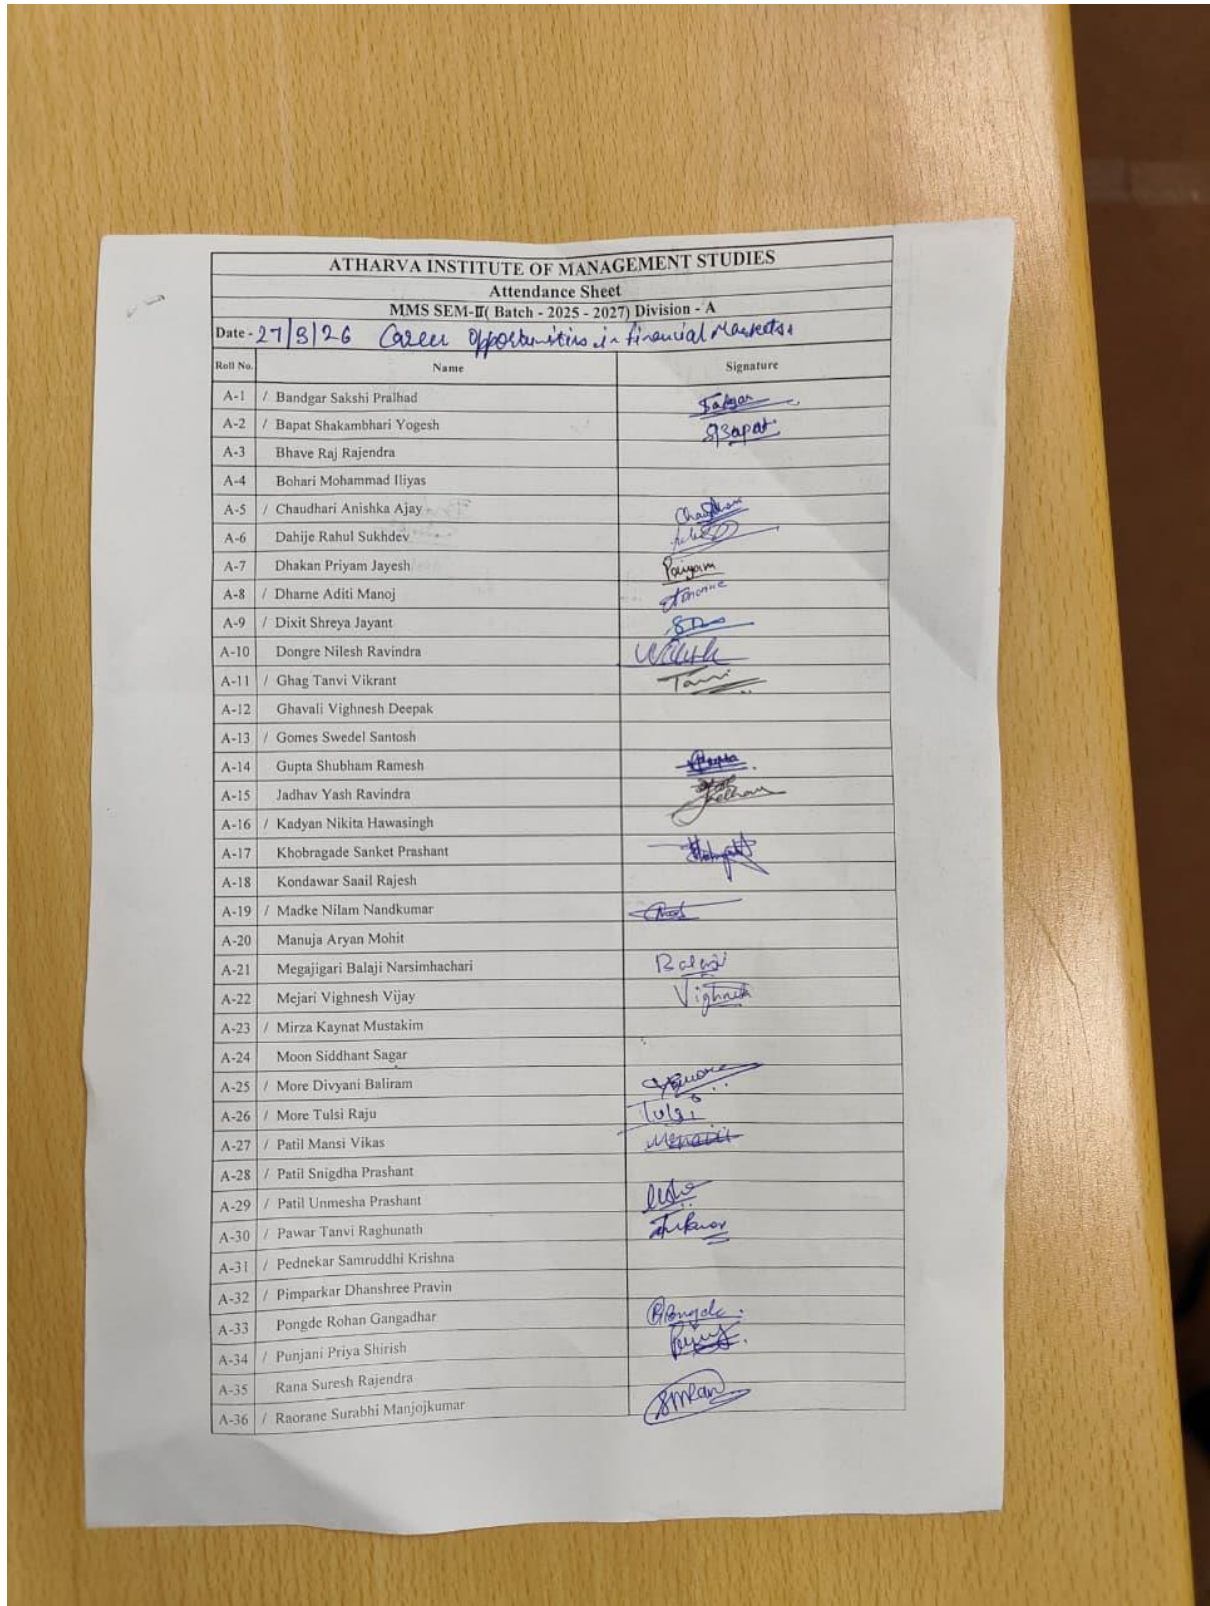 ATHARVA INSTITUTE OF MANAGEMENT STUDIES
Attendance Sheet
MMS SEM-II( Batch - 2025 - 2027) Division - A
Date - 27/3/26 Career Opportunities in financial Markets.
Roll No. Name Signature
A-1 / Bandgar Sakshi Pralhad
A-2 / Bapat Shakambhari Yogesh SBapat
A-3 Bhave Raj Rajendra
A-4 Bohari Mohammad Iliyas
A-5 / Chaudhari Anishka Ajay
A-6 Dahije Rahul Sukhdev
A-7 Dhakan Priyam Jayesh Priyam
A-8 / Dharne Aditi Manoj
A-9 / Dixit Shreya Jayant
A-10 Dongre Nilesh Ravindra
A-11 / Ghag Tanvi Vikrant Tanvi
A-12 Ghavali Vighnesh Deepak
A-13 / Gomes Swedel Santosh
A-14 Gupta Shubham Ramesh
A-15 Jadhav Yash Ravindra
A-16 / Kadyan Nikita Hawasingh
A-17 Khobragade Sanket Prashant
A-18 Kondawar Saail Rajesh
A-19 / Madke Nilam Nandkumar
A-20 Manuja Aryan Mohit
A-21 Megajigari Balaji Narsimhachari Balaji
A-22 Mejari Vighnesh Vijay Vighnesh
A-23 / Mirza Kaynat Mustakim
A-24 Moon Siddhant Sagar
A-25 / More Divyani Baliram
A-26 / More Tulsi Raju Tulsi
A-27 / Patil Mansi Vikas
A-28 / Patil Snigdha Prashant
A-29 / Patil Unmesha Prashant
A-30 / Pawar Tanvi Raghunath
A-31 / Pednekar Samruddhi Krishna
A-32 / Pimparkar Dhanshree Pravin
A-33 Pongde Rohan Gangadhar RPongde
A-34 / Punjani Priya Shirish
A-35 Rana Suresh Rajendra
A-36 / Raorane Surabhi Manjojkumar